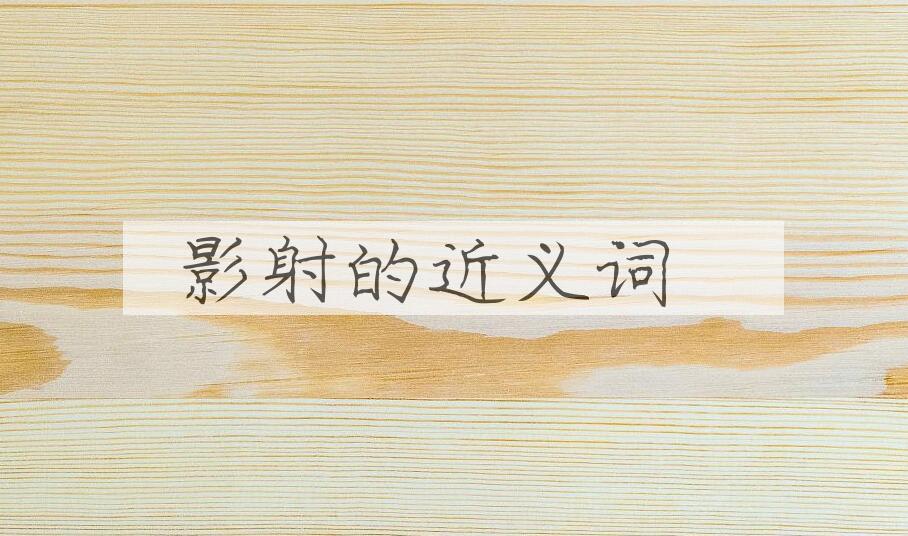 影射的近义词